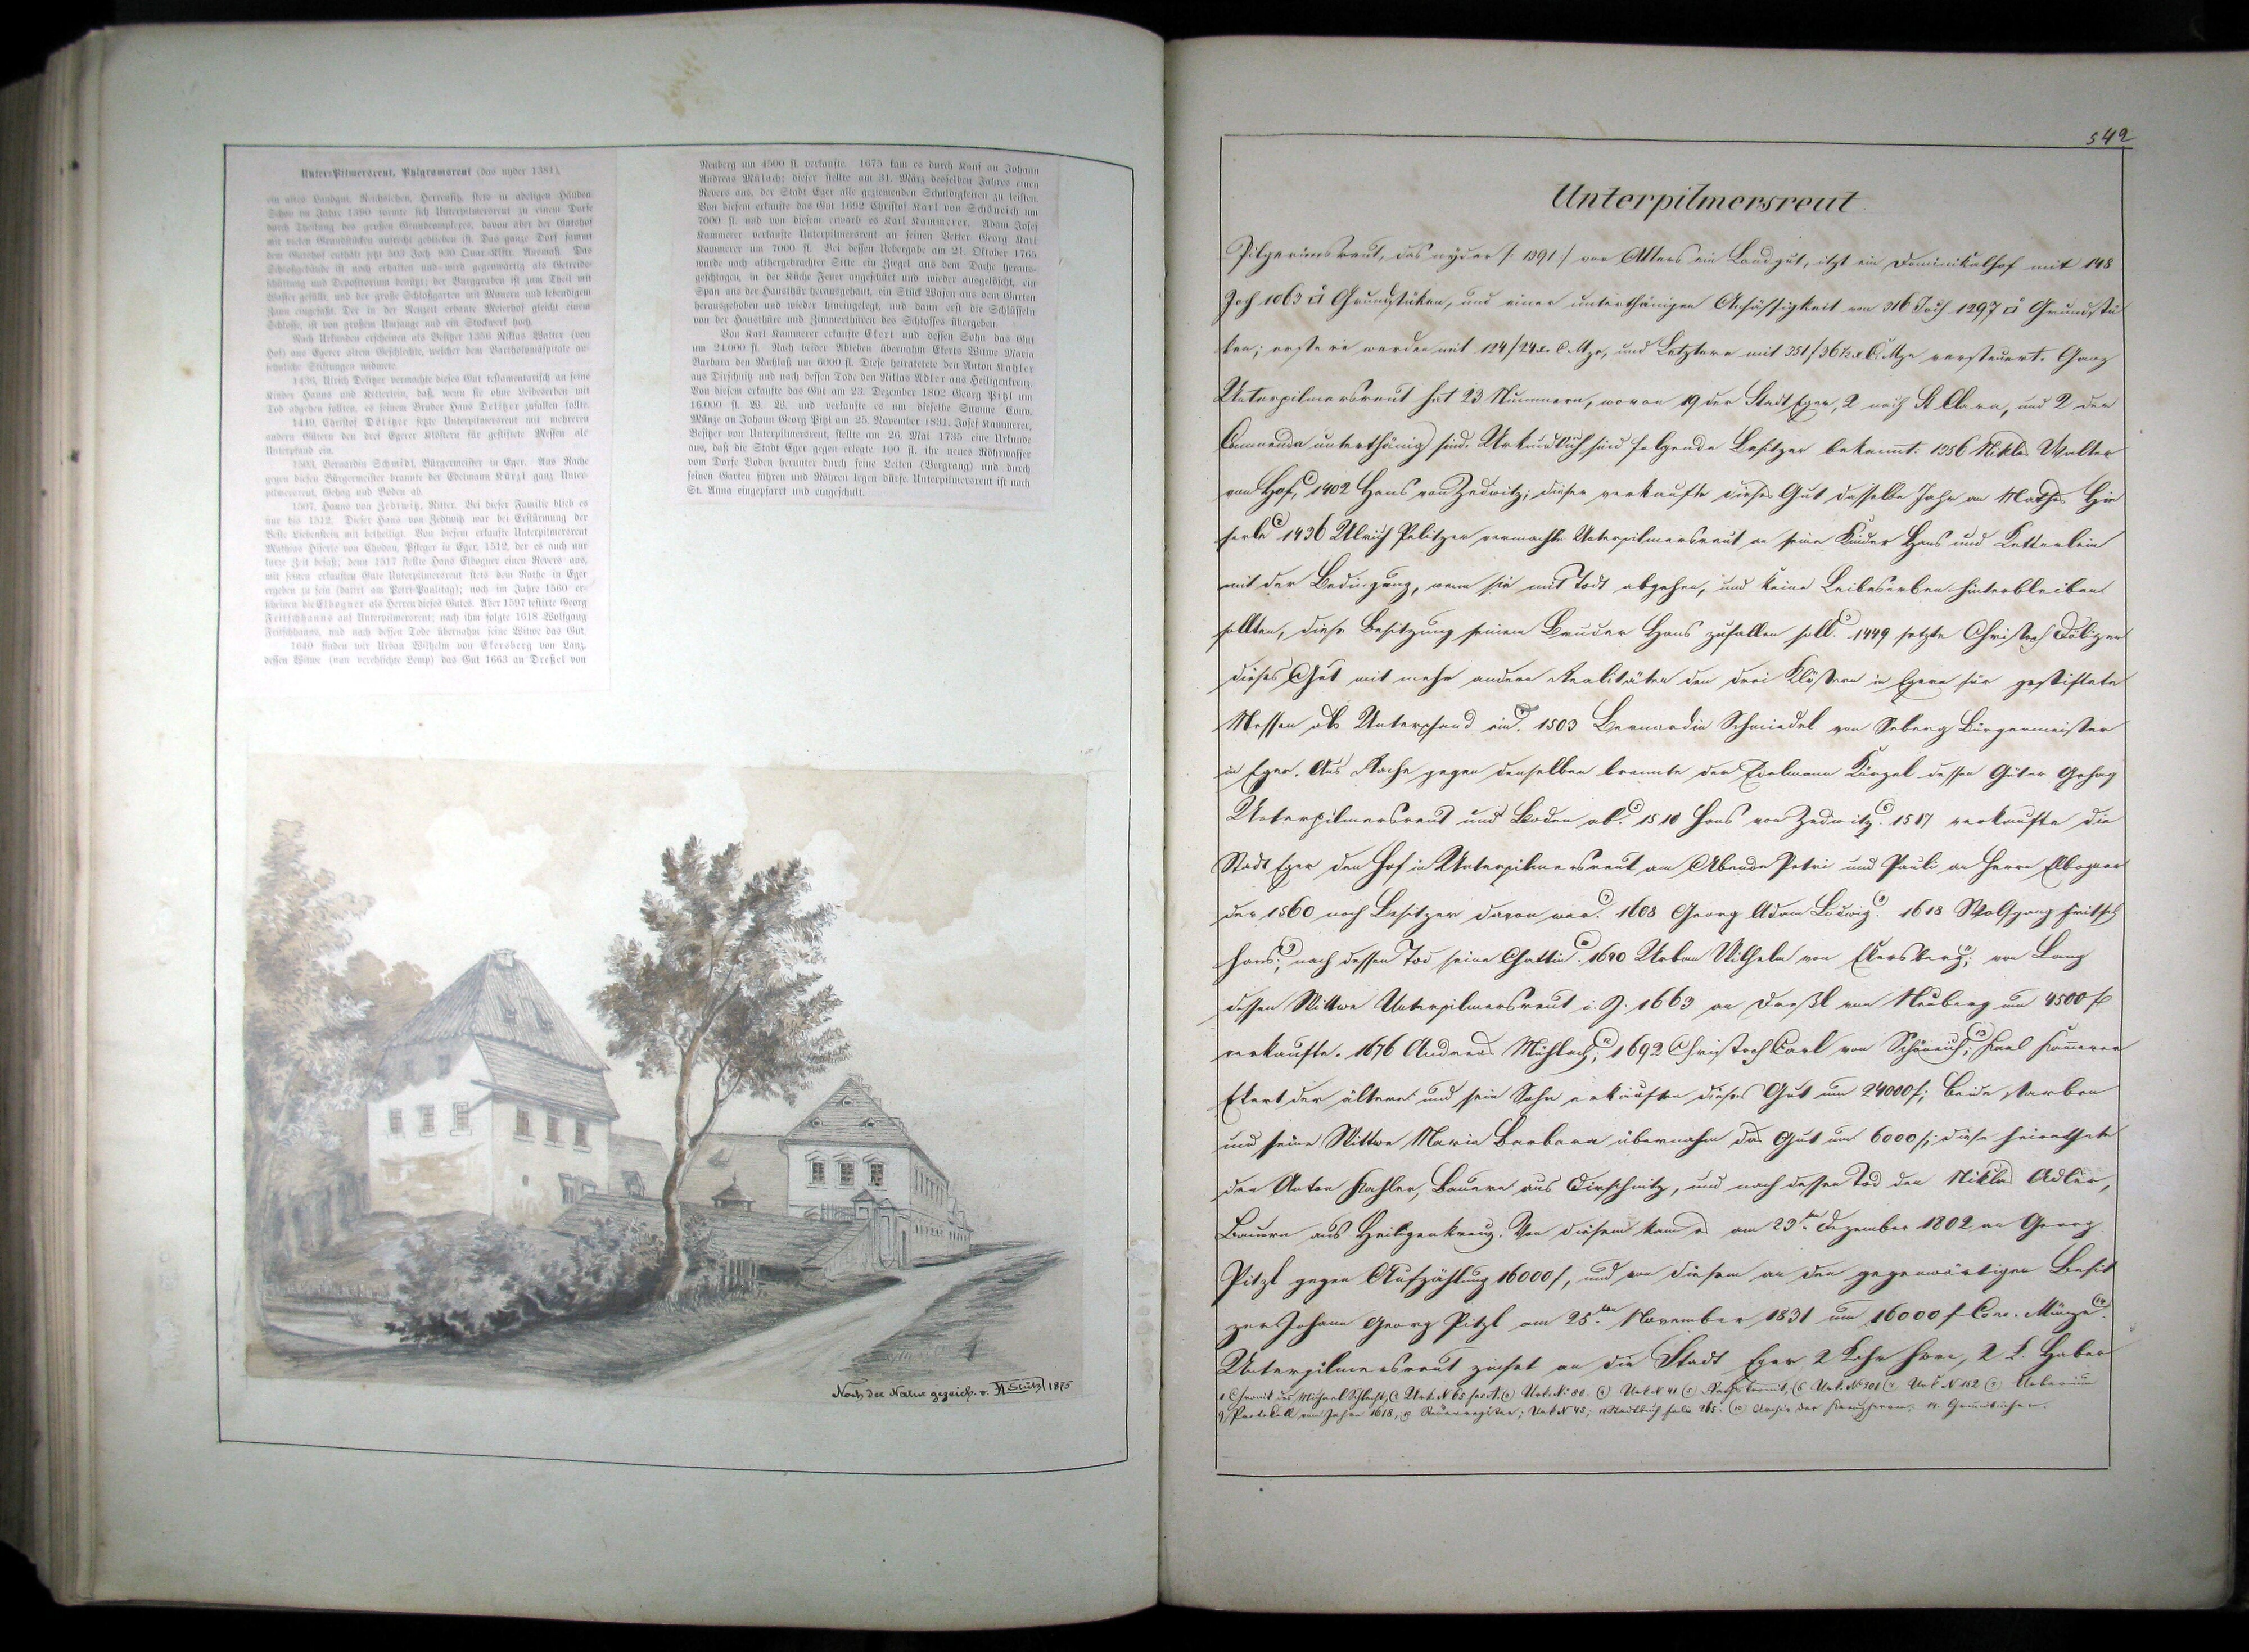 Unter-Pilmersreut, Pylgramsreut (das nyder 1381),
ein altes Landgut, Reichslehen, Herrensitz, stets in adeligen Händen.
Schon im Jahre 1390 formte sich Unterpilmersreut zu einem Dorfe
durch Theilung des großen Grundcomplexes, davon aber der Gutshof
mit vielen Grundstücken aufrecht geblieben ist. Das ganze Dorf sammt
dem Gutshof enthält jetzt 503 Joch 930 Quat.-Klftr. Ausmaß. Das
Schloßgebäude ist noch erhalten und wird gegenwärtig als Getreide-
schüttung und Depositorium benützt; der Burggraben ist zum Theil mit
Wasser gefüllt, und der große Schloßgarten mit Mauern und lebendigem
Zaun eingefaßt. Der in der Neuzeit erbaute Meierhof gleicht einem
Schlosse, ist von großem Umfange und ein Stockwerk hoch.
Nach Urkunden erscheinen als Besitzer 1356 Niklas Walter (von
Hof) aus Egerer altem Geschlechte, welcher dem Bartholomäspitale an-
sehnliche Stiftungen widmete.
1436, Ulrich Delitzer vermachte dieses Gut testamentarisch an seine
Kinder Hanns und Ketterlein, daß, wenn sie ohne Leibeserben mit
Tod abgehen sollten, es seinem Bruder Hans Delitzer zufallen sollte.
1449, Christof Dölitzer setzte Unterpilmersreut mit mehreren
andern Gütern den drei Egerer Klöstern für gestiftete Messen als
Unterpfand ein.
1503, Bernardin Schmidl, Bürgermeister in Eger. Aus Rache
gegen diesen Bürgermeister brannte der Edelmann Kürzl ganz Unter-
pilmersreut, Gehag und Boden ab.
1507, Hanns von Zedtwitz, Ritter. Bei dieser Familie blieb es
nur bis 1512. Dieser Hans von Zedtwitz war bei Erstürmung der
Veste Liebenstein mit betheiligt. Von diesem erkaufte Unterpilmersreut
Mathias Hiserle von Chodau, Pfleger in Eger, 1512, der es auch nur
kurze Zeit besaß; denn 1517 stellte Hans Elbogner einen Revers aus,
mit seinen erkauften Gute Unterpilmersreut stets dem Rathe in Eger
ergeben zu sein (datirt am Petri-Paulitag); noch im Jahre 1560 er-
scheinen die Elbogner als Herren dieses Gutes. Aber 1597 testirte Georg
Fritschhanns auf Unterpilmersreut; nach ihm folgte 1618 Wolfgang
Fritschhanns, und nach dessen Tode übernahm seine Witwe das Gut.
1640 finden wir Urban Wilhelm von Ekersberg von Lanz,
dessen Witwe (nun verehlichte Lemp) das Gut 1663 an Dreßel von
Neuberg um 4500 fl. verkaufte. 1675 kam es durch Kauf an Johann
Andreas Mülach; dieser stellte am 31. März desselben Jahres einen
Revers aus, der Stadt Eger alle geziemenden Schuldigkeiten zu leisten.
Von diesem erkaufte das Gut 1692 Christof Karl von Schöneich um
7000 fl. und von diesem erwarb es Karl Kammerer. Adam Josef
Kammerer verkaufte Unterpilmersreut an seinen Vetter Georg Karl
Kammerer um 7000 fl. Bei dessen Uebergabe am 21. Oktober 1765
wurde nach althergebrachter Sitte ein Ziegel aus dem Dache heraus-
geschlagen, in der Küche Feuer angeschürt und wieder ausgelöscht, ein
Span aus der Hausthür herausgehaut, ein Stück Wasen aus dem Garten
herausgehoben und wieder hineingelegt, und dann erst die Schlüsseln
von der Hausthüre und Zimmerthüren des Schlosses übergeben.
Von Karl Kammerer erkaufte Ekert und dessen Sohn das Gut
um 24.000 fl. Nach beider Ableben übernahm Ekerts Witwe Maria
Barbara den Nachlaß um 6000 fl. Diese heiratetete den Anton Kahler
aus Dirschnitz und nach dessen Tode den Niklas Adler aus Heiligenkreuz.
Von diesem erkaufte das Gut am 23. Dezember 1802 Georg Pitzl um
16.000 fl. W. W. und verkaufte es um dieselbe Summe Conv.
Münze an Johann Georg Pitzl am 25. November 1831. Josef Kammerer,
Besitzer von Unterpilmersreut, stellte am 26. Mai 1735 eine Urkunde
aus, daß die Stadt Eger gegen erlegte 100 fl. ihr neues Röhrwasser
vom Dorfe Boden herunter durch seine Leiten (Bergrang) und durch
seinen Garten führen und Röhren legen dürfe. Unterpilmersreut ist nach
St. Anna eingepfarrt und eingeschult.
Nach der Natur gezeich. v. Stützl 1875
542
Unterpilmersreut
Pilgerimsreut, das nyder /: 1391 :/ vor Alters ein Landgut, itzt ein Dominikalhof mit 148
Joch 1063 Grundstüken, und einer unterthänigen Ansässigkeit von 316 Joch 1297 Grundstü
ken; erstere werden mit 124/24 x. C. Mze, und Letztere mit 351/36 x C. Mze versteuert. Ganz
Unterpilmersreut hat 23 Nummern, wovon 19 der Stadt Eger, 2 nach St Clara, und 2 der
Commenda unterthänig sind. Urkundlich sind folgende Besitzer bekannt: 1356 Niklas Walter
von Hof, 1402 Hans von Zedwitz; dieser verkaufte dieses Gut dasselbe Jahr an Mathes Hie
serle 1436 Ulrich Pelitzer vermachte Unterpilmersreut an seine Kinder Hans und Ketterlein
mit der Bedingung, wenn sie mit Todt abgehen, und keine Leibeserben hinterbleiben
sollten, diese Besitzung seinem Bruder Hans zufallen soll. 1449 setzte Christoph Dölizer
dieses Gut mit mehr andern Realitäten den drei Klöstern in Eger für gestiftete
Messen als Unterpfand ein. 1503 Bernardin Schmiedel von Seberg Bürgermeister
in Eger. Aus Rache gegen denselben brannte der Edelmann Kürzel dessen Güter Gehag
Unterpilmersreut und Boden ab. 1510 Hans von Zedwitz. 1517 verkaufte die
Stadt Eger den Hof in Unterpilmersreut am Abende Petri und Pauli an Herrn Elbogner
der 1560 noch Besitzer davon war. 1608 Georg Adam Ludwig. 1618 Wolfgang Fritsch
hans, nach dessen Tod seine Gattin. 1640 Urban Wilhelm von Ekersberg; von Lanz
dessen Wittwe Unterpilmersreut i. J. 1663 an Dreßl von Neuberg um 4500 fl
verkaufte. 1676 Andreas Mühlach; 1692 Christoph Carl von Schöneich; Karl Kammerer
Ekert der ältere und sein Sohn erkauften dieses Gut um 24000 f; beide starben
und seine Wittwe Maria Barbara übernahm das Gut um 6000 f; diese heirathete
den Anton Kahler, Bauern aus Dirschnitz, und nach dessen Tod den Niklas Adler,
Bauern aus Heiligenkreuz. Von diesem kam es am 23ten Dezember 1802 an Georg
Pitzl gegen Aufzählung 16000 f, und von diesem an den gegenwärtigen Besit
zer Johann Georg Pitzl am 25ten November 1831 um 16000 f Con. Münze.
Unterpilmersreut zinset an die Stadt Eger 2 Kahr Korn, 2 K. Haber